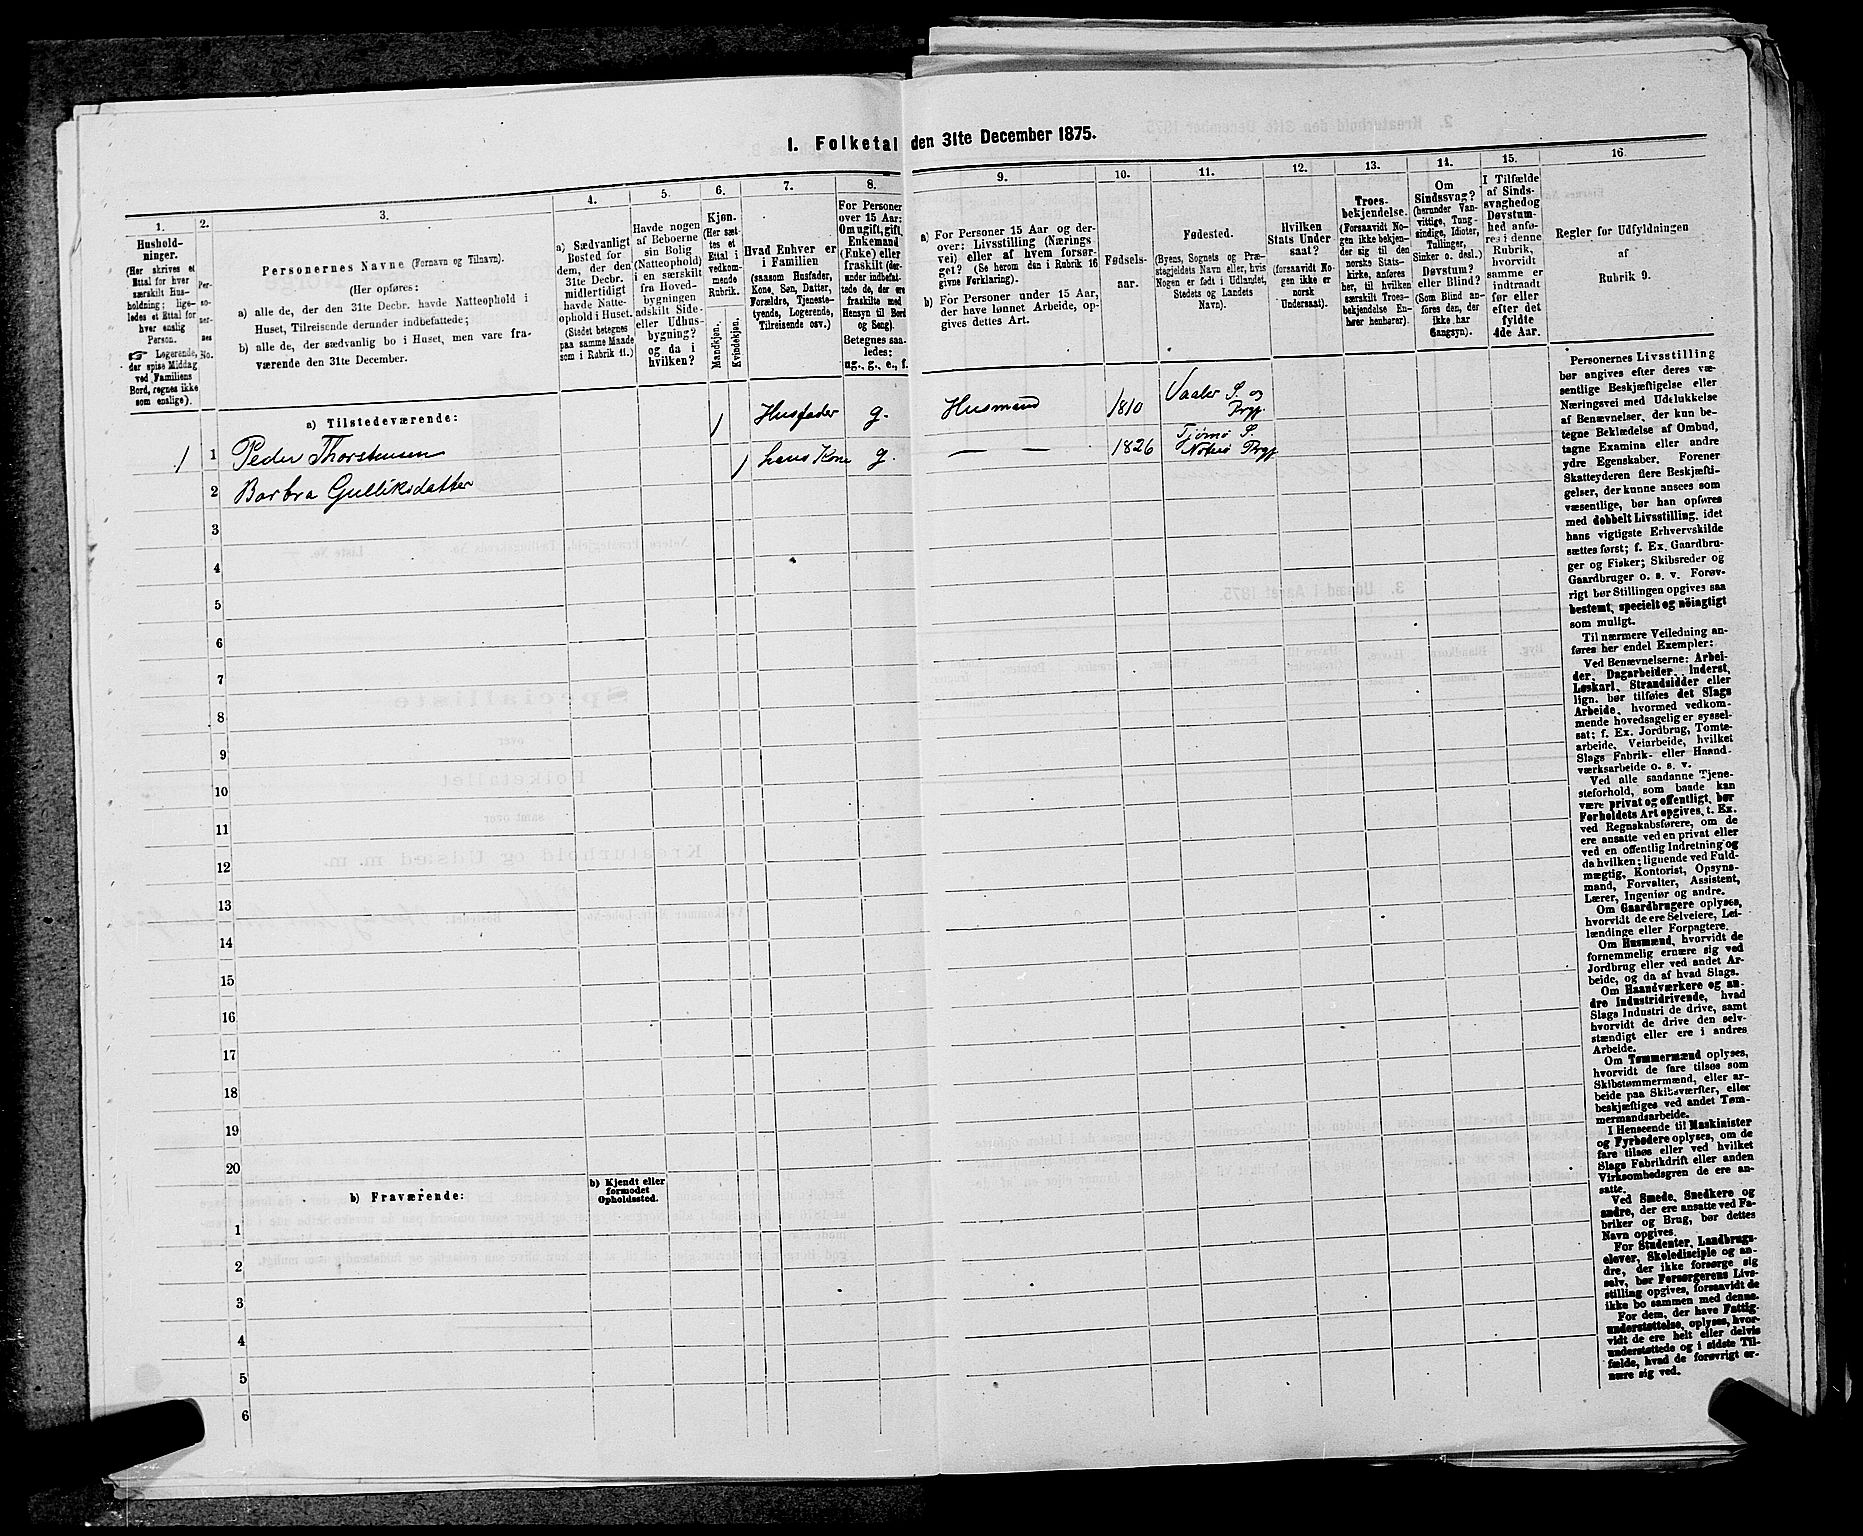 1. Folketal den 31te December 1875.
1.
2.
3.
4.
5.
6.
7.
8.
9.
10.
11.
12.
13.
14.
15.
16.
Hushold-
ninger.
(Her skrives et
Ettal for hver
særskilt Hus-
holdning; lige-
ledes et Ettal for
hver enslig
Person.
☞ Logerende,
der spise Middag
ved Familiens
Bord, regnes ikke
som enslige).
Per-
so-
ner-
nes
No.
Personernes Navne (Fornavn og Tilnavn).
(Her opføres:
a) alle de, der den 31te Decbr. havde Natteophold i
Huset, Tilreisende derunder indbefattede;
b) alle de, der sædvanlig bo i Huset, men vare fra-
værende den 31te December.
a) Sædvanligt
Bosted for
dem, der den
31te Decbr.
midlertidigt
havde Natte-
ophold i Huset.
(Stedet betegnes
paa samme Maade
som i Rubrik 11.)
Havde nogen
af Beboerne
sin Bolig
(Natteophold)
i en særskilt
fra Hoved-
bygningen
adskilt Side-
eller Udhus-
bygning?
og da i
hvilken?
Kjøn.
(Her sæt-
tes et
Ettal i
vedkom-
mende
Rubrik.
Mandkjøn.
Kvindekjøn.
Hvad Enhver er
i Familien
(saasom Husfader,
Kone, Søn, Datter,
Forældre, Tjeneste-
tyende, Logerende,
Tilreisende osv.)
For Personer
over 15 Aar:
Om ugift, gift,
Enkemand
(Enke) eller
fraskilt (der-
under indbefat-
tede de, der ere
fraskilte med
Hensyn til Bord
og Seng).
Betegnes saa-
ledes:
ug., g., e., f.
a) For Personer 15 Aar og der-
over: Livsstilling (Nærings-
vei) eller af hvem forsør-
get? (Se herom den i Rubrik 16
givne Forklaring).
b) For Personer under 15 Aar,
der have lønnet Arbeide, op-
gives dettes Art.
Fødsels-
aar.
Fødested.
(Byens, Sognets og Præ-
stegjeldets Navn eller, hvis
Nogen er født i Udlandet,
Stedets og Landets
Navn).
Hvilken
Stats Under
saat?
(forsaavidt No-
gen ikke er
norsk
Undersaat).
Troes-
bekjendelse.
(Forsaavidt No-
gen ikke bekjen-
der sig til den
norske Stats-
kirke, anføres
her, til hvilken
særskilt Troes-
bekjendelse En-
hver henhører).
Om
Sindssvag?
(herunder Van-
vittige, Tung-
sindige, Idioter,
Tullinger,
Sinker o. desl.)
Døvstum?
eller Blind?
(Som Blind an-
føres den, der
ikke har
Gangsyn).
I Tilfælde
af Sinds-
svaghed og
Døvstum-
hed anfø-
res i denne
Rubrik,
hvorvidt
samme er
indtraadt
før eller
efter det
fyldte
4de Aar.
Regler for Udfyldningen
af
Rubrik 9.
a) Tilstedeværende:
1 1 Peder Thorstensen 1 Husfader g. Husmand 1810 Vaaler S. og
Prgj.
2 Barbra Gulliksdatter 1 hans Kone g. — — 1826 Tjømø S.
Nøterø Prgj.
3
4
5
6
7
8
9
10
11
12
13
14
15
16
17
18
19
20
b) Fraværende:
b) Kjendt eller
formodet
Opholdssted.
1
2
3
4
5
6
Personernes Livsstilling
bør angives efter deres væ-
sentlige Beskjæftigelse eller
Næringsvei med Udelukkelse
af Benævnelser, der kun be-
tegne Beklædelse af Ombud,
tagne Examina eller andre
ydre Egenskaber. Forener
Skatteyderen flere Beskjæfti-
gelser, der kunne ansees som
væsentlige, bør han opføres
med dobbelt Livsstilling, idet
hans vigtigste Erhvervskilde
sættes først; f. Ex. Gaardbru-
ger og Fisker; Skibsreder og
Gaardbruger o. s. v. Forøv-
rigt bør Stillingen opgives saa
bestemt, specielt og nøiagtigt
som muligt.
Til nærmere Veiledning an-
føres her endel Exempler:
Ved Benævnelserne: Arbei-
der, Dagarbeider, Inderst,
Løskarl, Strandsidder eller
lign. bør tilføies det Slags
Arbeide, hvormed vedkom-
mende hovedsagelig er syssel-
sat; f. Ex. Jordbrug, Tomte-
arbeide, Veiarbeide, hvilket
Slags Fabrik- eller Haand-
værksarbeide o. s. v.
Ved alle saadanne Tjene-
steforhold, som baade kan
være privat og offentligt, bør
Forholdets Art opgives, t. Ex.
ved Regnskabsførere, om de
ere ansatte ved en privat eller
ved en offentlig Indretning og
da hvilken; lignende ved Fuld-
mægtig, Kontorist, Opsyns-
mand, Forvalter, Assistent,
Lærer, Ingeniør og andre.
Om Gaardbrugere oplyses,
hvorvidt de ere Selveiere, Lei-
lændinge eller Forpagtere.
Om Husmænd, hvorvidt de
fornemmelig ernære sig ved
Jordbrug eller ved andet Ar-
beide, og da af hvad Slags.
Om Haandværkere og an-
dre Industridrivende, hvad
Slags Industri de drive, samt
hvorvidt de drive den selv-
stændigt eller ere i andres
Arbeide.
Om Tømmermænd oplyses,
hvorvidt de fare tilsøs som
Skibstømmermænd, eller ar-
beide paa Skibsværfter, eller
beskjæftiges ved andet Tøm-
mermandsarbeide.
I Henseende til Maskinister
og Fyrbødere oplyses, om de
fare tilsøs eller ved hvilket
Slags Fabrikdrift eller anden
Virksomhedsgren de ere an-
satte.
Ved Smede, Snedkere og
andre, der ere ansatte ved Fa-
briker og Brug, bør dettes
Navn opgives.
For Studenter, Landbrugs-
elever, Skoledisciple og an-
dre, der ikke forsørge sig
selv, bør Forsørgerens Livs-
stilling opgives, forsaavidt de
ikke bo sammen med denne.
For dem, der have Fattig-
understøttelse, oplyses, hvor-
vidt de ere helt eller delvis
understøttede og i sidste Til-
fælde, hvad de forøvrigt er-
nære sig ved.